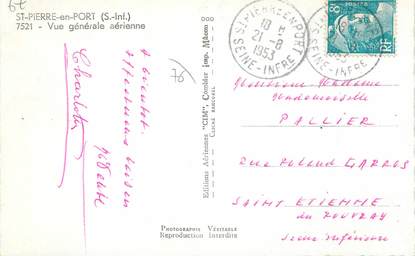 67
ST-PIERRE-en-PORT (S.-Inf.)
7521 - Vue générale aérienne
76
A bientôt.
Affectueux baisers
Charlotte
Editions Aériennes "CIM", Combier imp. Mâcon
CLICHÉ RANCUREL
PHOTOGRAPHIE VÉRITABLE
Reproduction Interdite
ST-PIERRE-EN-PORT
18 H
21-8
1953
SEINE-INFRE
8F
RF
Monsieur Madame
Mademoiselle
PALLIER
Rue Rolland GARROS
SAINT ETIENNE
du ROUVRAY
Seine Inférieure